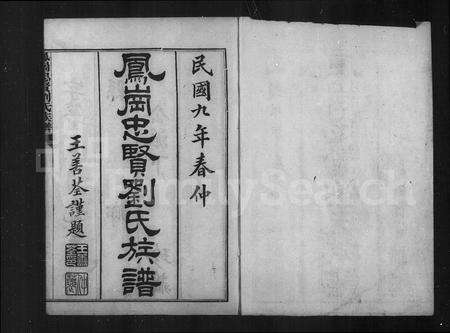 民國九年春仲
鳳崗忠賢劉氏族譜
王善荃謹題